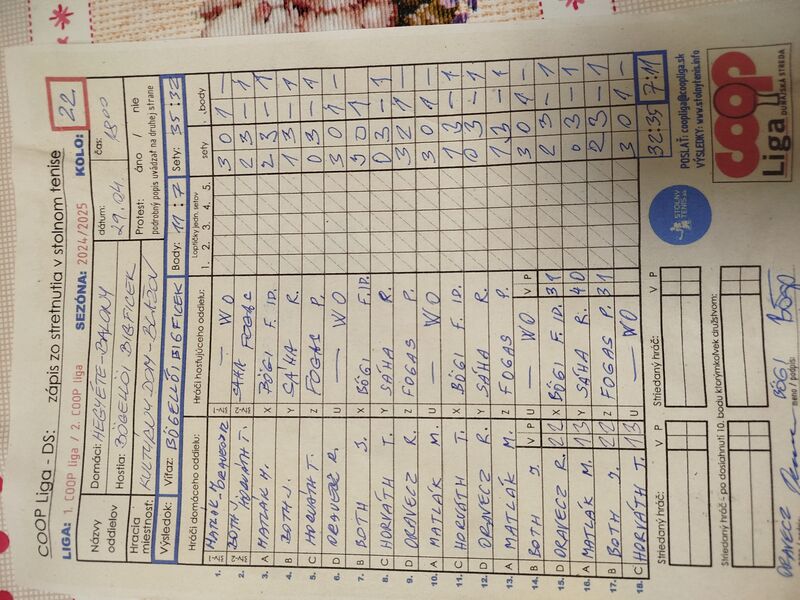 COOP Liga - DS: zápis zo stretnutia v stolnom tenise
LIGA: 1. COOP liga / 2. COOP liga SEZÓNA: 2024/2025 KOLO: 22
Názvy oddielov
Domáci: HEGYÉTE-BALONY
Hostia: BÖGELLÖI BIGFICEK
dátum: 29.04.
čas: 1800
Hracia miestnosť: KULTÚRNY DOM -
Protest: áno / nie
podrobný popis uvádzať na druhej strane
Výsledok: Víťaz: BÖGELLŐI BIGFICEK Body: 11:7 Sety: 35:32
Hráči domáceho oddielu: Hráči hosťujúceho oddielu: Loptičky jedn. setov sety body
1. 2. 3. 4. 5.
1. MATLÁK M. - DRAVECZ R. — WO 3 0 1 —
2. BOTH J. HORVÁTH T. SAHA FOGAS 2 3 — 1
3. A MATLÁK M. X BÖGI F. ID. 2 3 — 1
4. B BOTH J. Y SAHA R. 1 3 — 1
5. C HORVÁTH T. Z FOGAS P. 0 3 — 1
6. D ORAVECZ R. U — WO 3 0 1 —
7. B BOTH J. X BÖGI F. ID. 3 0 1 —
8. C HORVÁTH T. Y SAHA R. 0 3 — 1
9. D ORAVECZ R. Z FOGAS P. 3 2 1 —
10. A MATLÁK M. U — WO 3 0 1 —
11. C HORVÁTH T. X BÖGI F. ID. 1 3 — 1
12. D ORAVECZ R. Y SAHA R. 0 3 — 1
13. A MATLÁK M. Z FOGAS P. 1 3 — 1
14. B BOTH J. V P U — WO V P 3 0 1 —
15. D ORAVECZ R. 2 2 X BÖGI F. ID. 3 1 2 3 — 1
16. A MATLÁK M. 1 3 Y SAHA R. 4 0 0 3 — 1
17. B BOTH J. 2 2 Z FOGAS P. 3 1 2 3 — 1
18. C HORVÁTH T. 1 3 U — WO 3 0 1 —
32:35 7:11
Striedaný hráč: V P Striedaný hráč: V P
Striedaný hráč - po dosiahnutí 10. bodu ktorýmkoľvek družstvom:
STOLNÝ TENIS.sk
POSLAŤ: coopliga@coopliga.sk
VÝSLEDKY: www.stolnytenis.info
COOP
Liga DUNAJSKÁ STREDA
ORAVECZ BÖGI
meno / podpis: